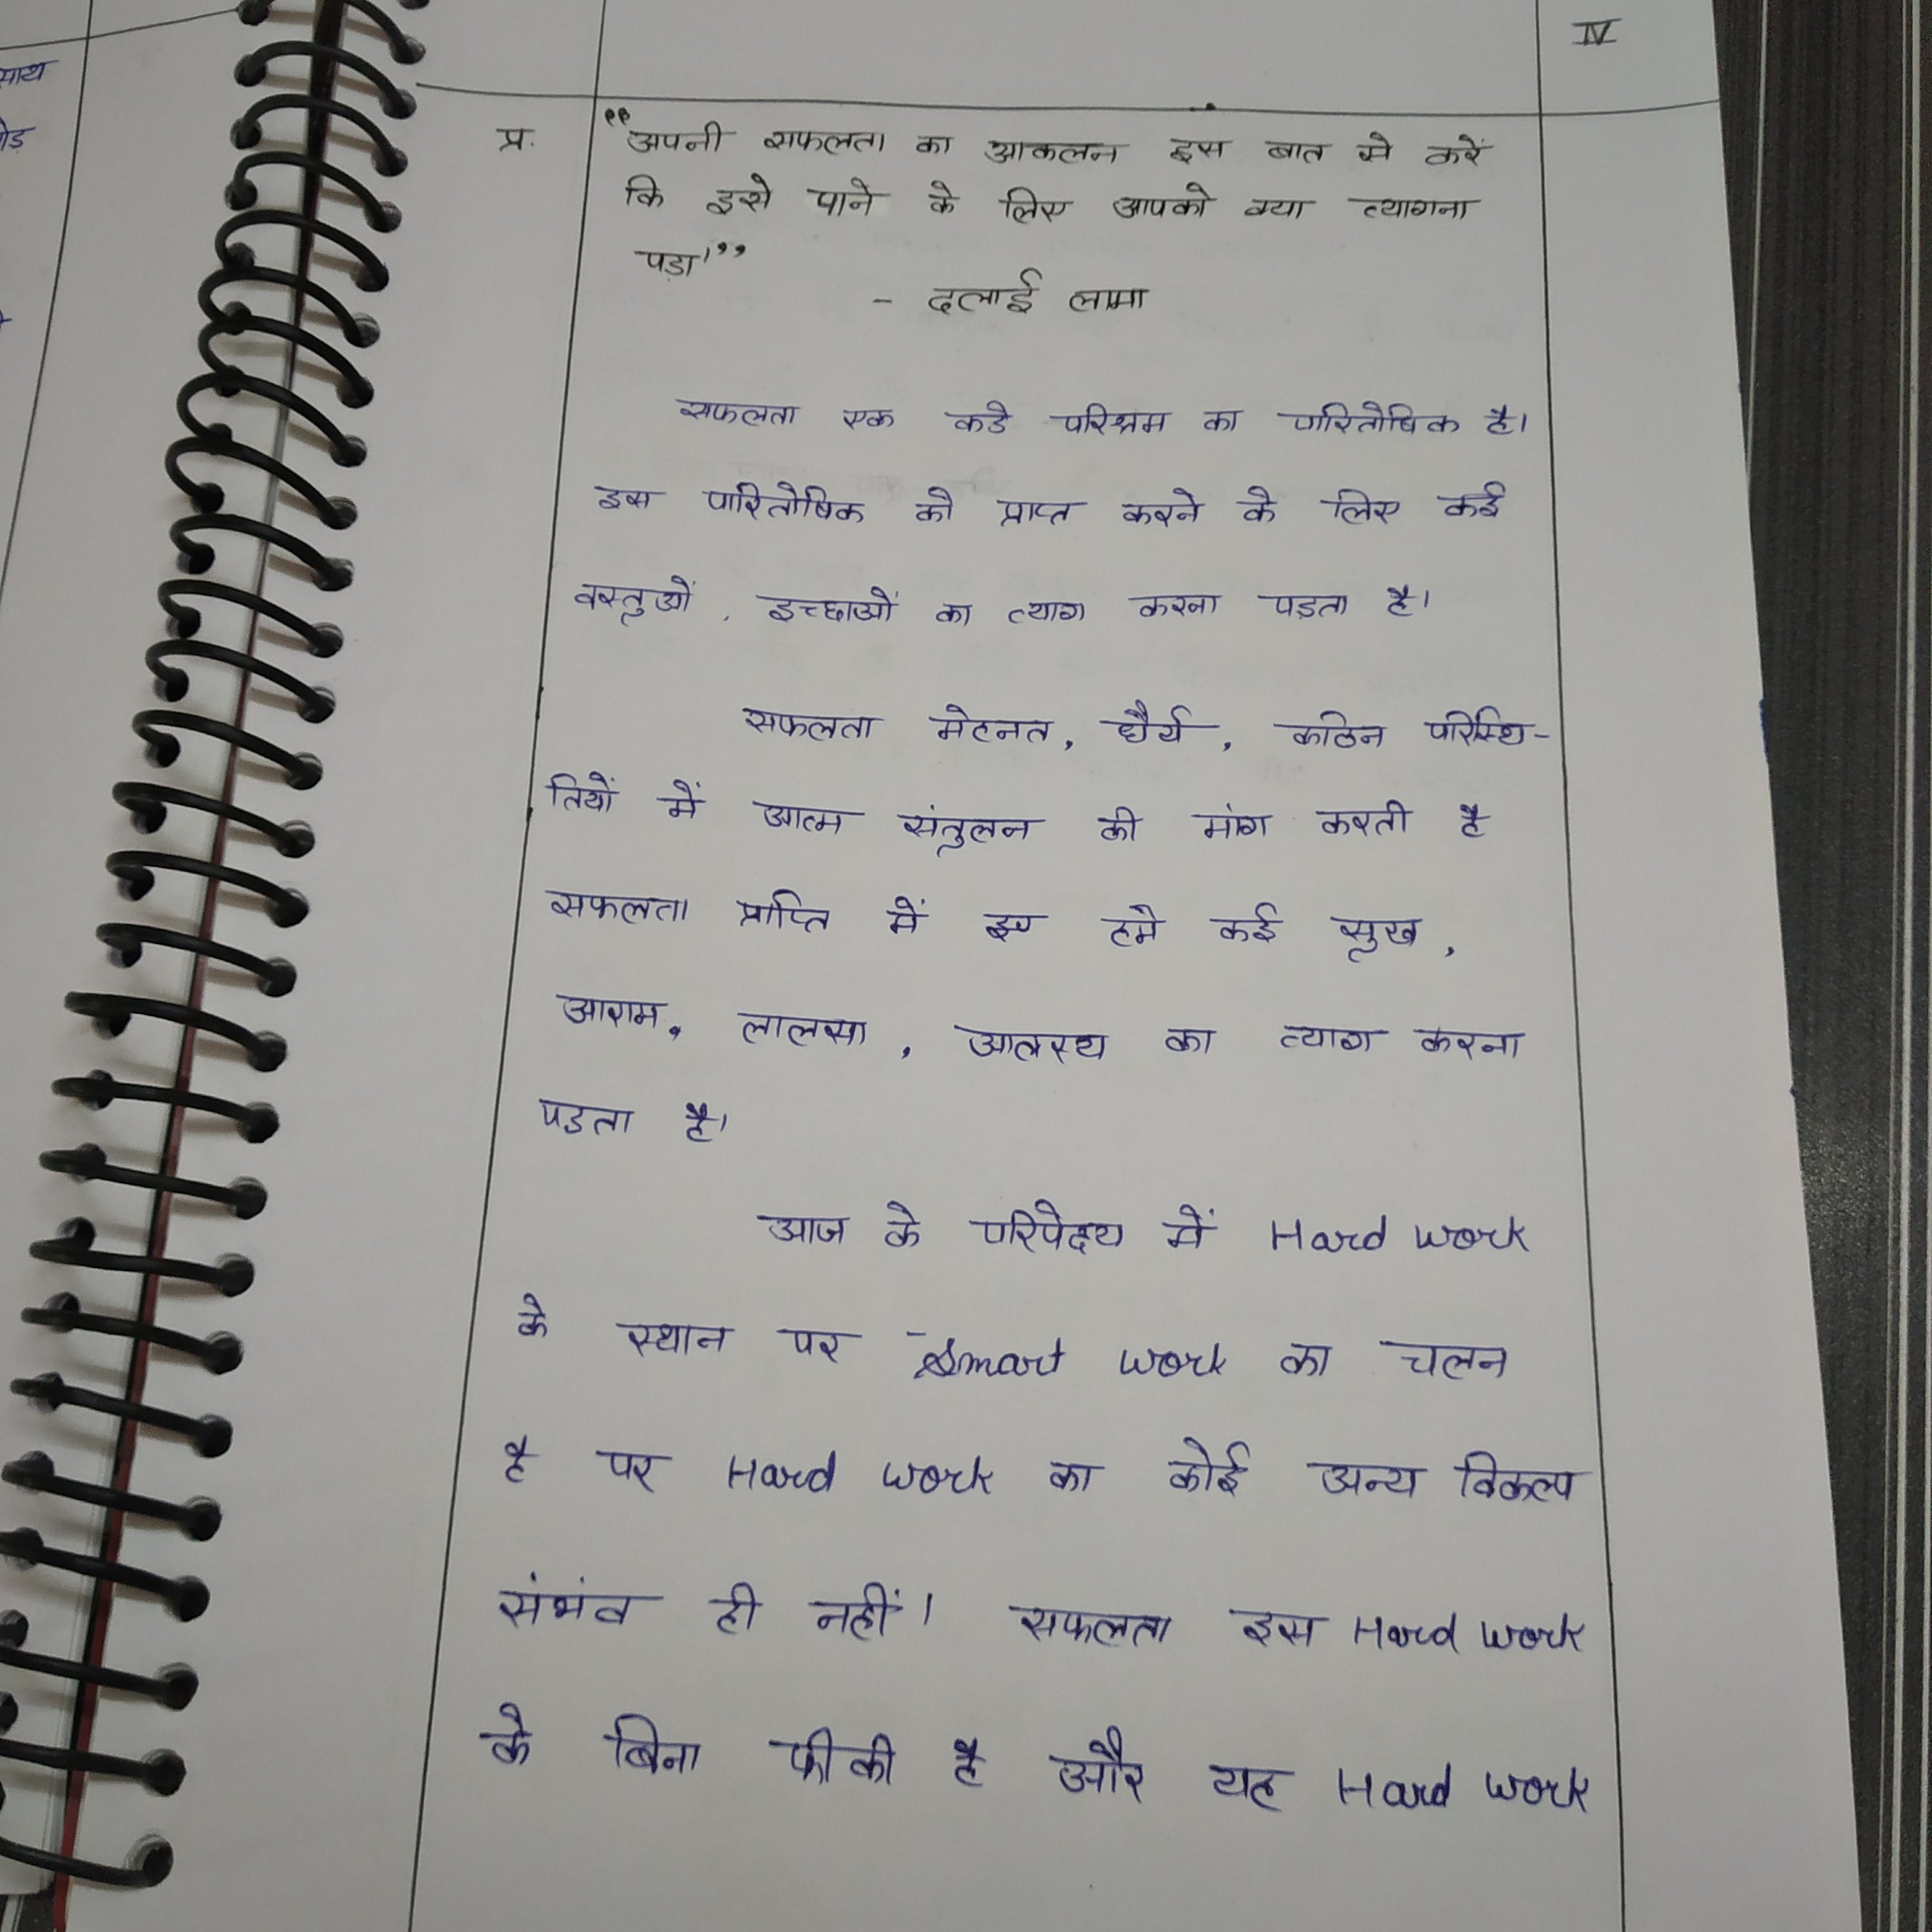 साथ
IV
प्र. “अपनी सफलता का आकलन इस बात से करें
कि इसे पाने के लिए आपको क्या त्यागना
पड़ा।”
- दलाई लामा
सफलता एक कडे परिश्रम का पारितोषिक है।
इस पारितोषिक को प्राप्त करने के लिए कई
वस्तुओं, इच्छाओं का त्याग करना पड़ता है।
सफलता मेहनत, धैर्य, कठिन परिस्थि-
तियों में आत्म संतुलन की मांग करती है
सफलता प्राप्ति में हमे कई सुख,
आराम, लालसा, आलस्य का त्याग करना
पडता है।
आज के परिपेक्ष्य में Hard work
के स्थान पर Smart work का चलन
है पर Hard work का कोई अन्य विकल्प
संभंव ही नहीं। सफलता इस Hard work
के बिना फीकी है और यह Hard work